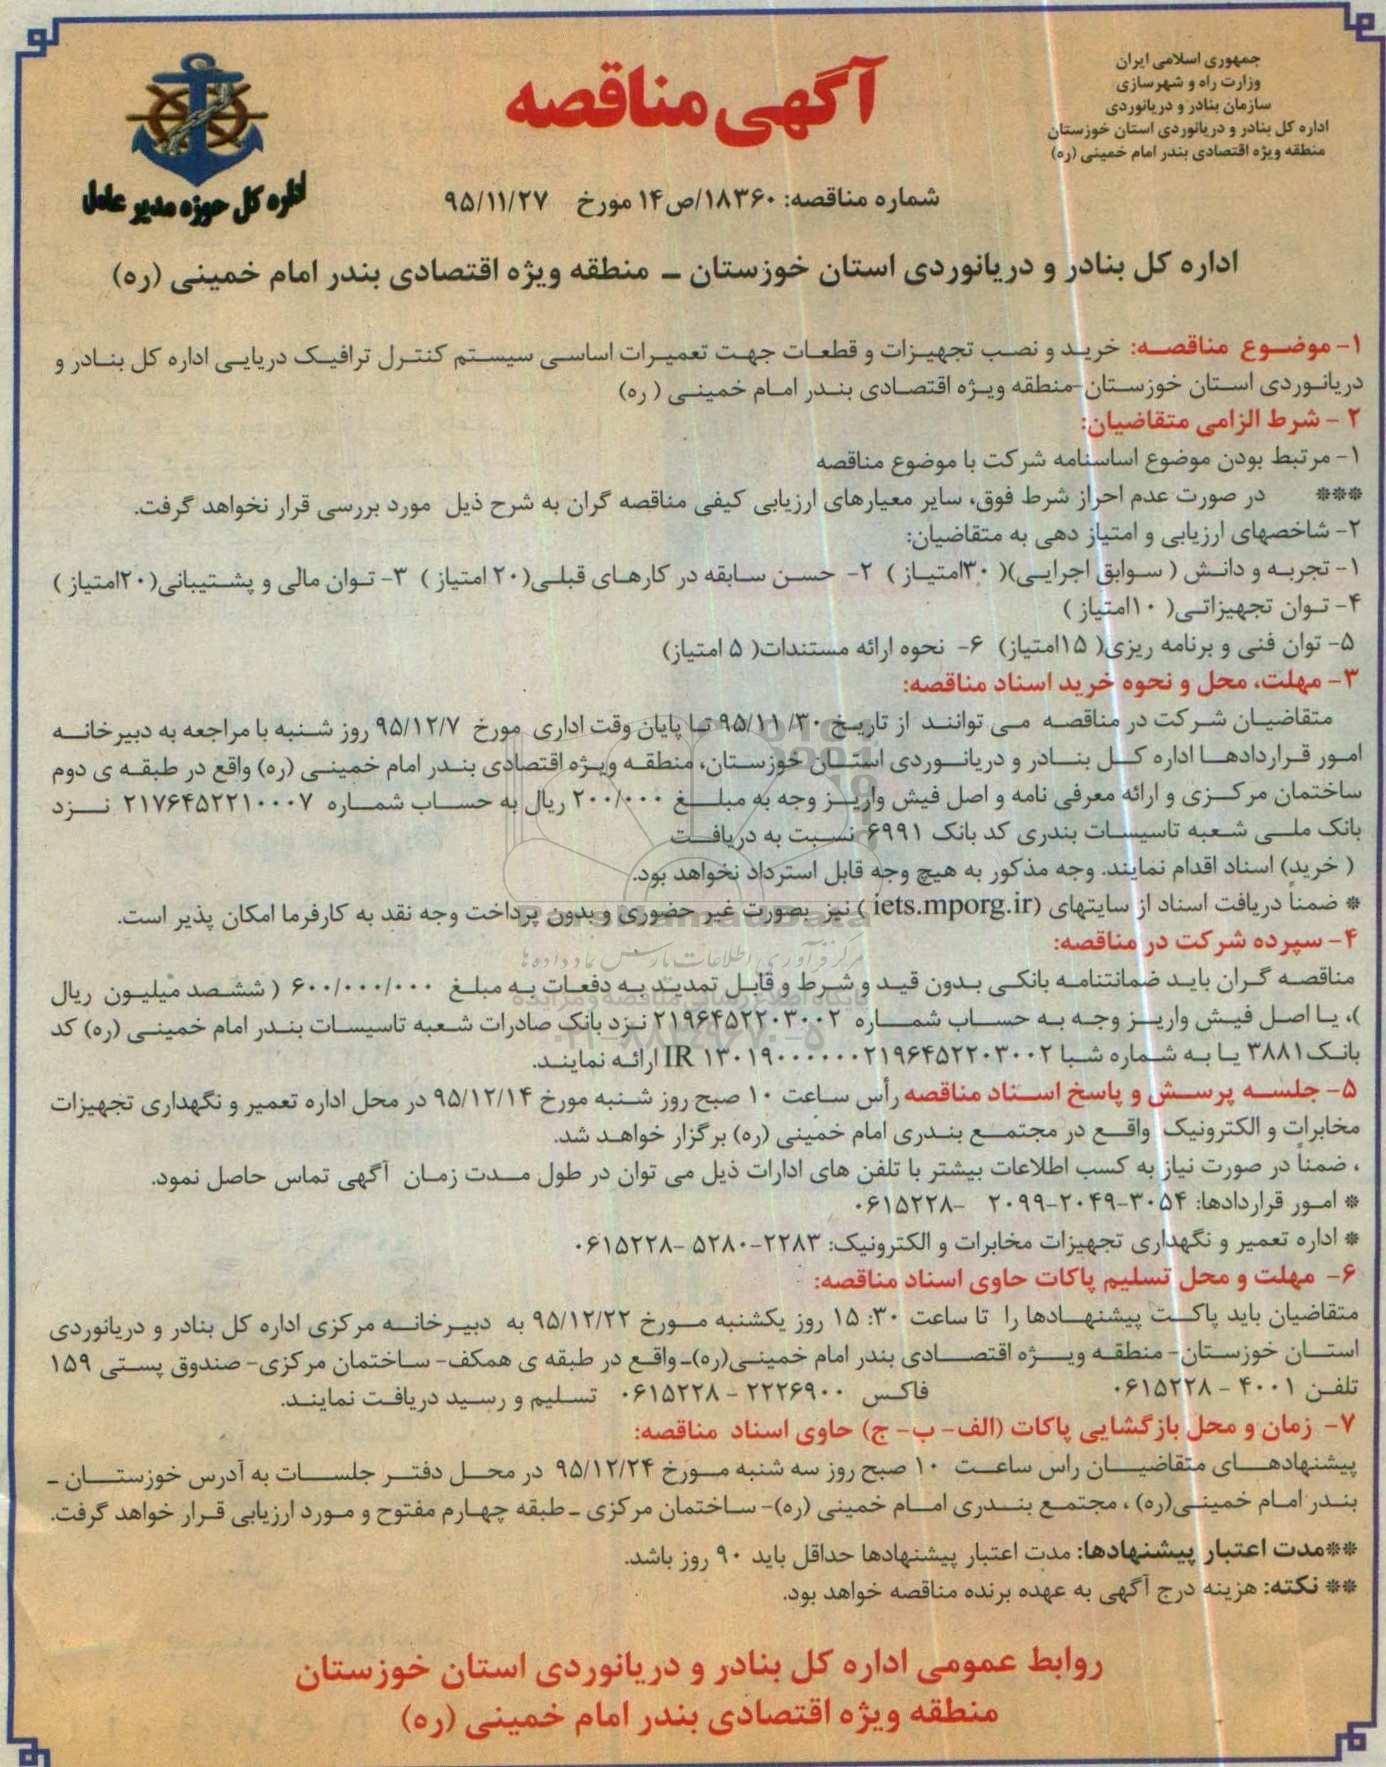 جمهوری اسلامی ایران
وزارت راه و شهرسازی
سازمان بنادر و دریانوردی
اداره کل بنادر و دریانوردی استان خوزستان
منطقه ویژه اقتصادی بندر امام خمینی (ره)
آگهی مناقصه
اداره کل حوزه مدیر عامل
شماره مناقصه: ۱۸۳۶۰/ص۱۴ مورخ ۹۵/۱۱/۲۷
اداره کل بنادر و دریانوردی استان خوزستان ـ منطقه ویژه اقتصادی بندر امام خمینی (ره)
۱- موضوع مناقصه: خرید و نصب تجهیزات و قطعات جهت تعمیرات اساسی سیستم کنترل ترافیک دریایی اداره کل بنادر و
دریانوردی استان خوزستان-منطقه ویژه اقتصادی بندر امام خمینی ( ره)
۲ - شرط الزامی متقاضیان:
۱- مرتبط بودن موضوع اساسنامه شرکت با موضوع مناقصه
*** در صورت عدم احراز شرط فوق، سایر معیارهای ارزیابی کیفی مناقصه گران به شرح ذیل مورد بررسی قرار نخواهد گرفت.
۲- شاخصهای ارزیابی و امتیاز دهی به متقاضیان:
۱- تجربه و دانش ( سوابق اجرایی)( ۳۰امتیاز ) ۲- حسن سابقه در کارهای قبلی(۲۰ امتیاز ) ۳- توان مالی و پشتیبانی(۲۰امتیاز )
۴- توان تجهیزاتی( ۱۰امتیاز )
۵- توان فنی و برنامه ریزی( ۱۵امتیاز) ۶- نحوه ارائه مستندات( ۵ امتیاز)
۳- مهلت، محل و نحوه خرید اسناد مناقصه:
متقاضیان شرکت در مناقصه می توانند از تاریخ ۹۵/۱۱/۳۰ تا پایان وقت اداری مورخ ۹۵/۱۲/۷ روز شنبه با مراجعه به دبیرخانه
امور قراردادها اداره کل بنادر و دریانوردی استان خوزستان، منطقه ویژه اقتصادی بندر امام خمینی (ره) واقع در طبقه ی دوم
ساختمان مرکزی و ارائه معرفی نامه و اصل فیش واریز وجه به مبلغ ۲۰۰/۰۰۰ ریال به حساب شماره ۲۱۷۶۴۵۲۲۱۰۰۰۷ نزد
بانک ملی شعبه تاسیسات بندری کد بانک ۶۹۹۱ نسبت به دریافت
( خرید) اسناد اقدام نمایند. وجه مذکور به هیچ وجه قابل استرداد نخواهد بود.
* ضمناً دریافت اسناد از سایتهای (iets.mporg.ir ) نیز بصورت غیر حضوری و بدون پرداخت وجه نقد به کارفرما امکان پذیر است.
۴- سپرده شرکت در مناقصه:
مناقصه گران باید ضمانتنامه بانکی بدون قید و شرط و قابل تمدید به دفعات به مبلغ ۶۰۰/۰۰۰/۰۰۰ ( ششصد میلیون ریال
)، یا اصل فیش واریز وجه به حساب شماره ۲۱۹۶۴۵۲۲۰۳۰۰۲ نزد بانک صادرات شعبه تاسیسات بندر امام خمینی (ره) کد
بانک۳۸۸۱ یا به شماره شبا IR ۱۳۰۱۹۰۰۰۰۰۰۰۲۱۹۶۴۵۲۲۰۳۰۰۲ ارائه نمایند.
۵- جلسه پرسش و پاسخ اسناد مناقصه رأس ساعت ۱۰ صبح روز شنبه مورخ ۹۵/۱۲/۱۴ در محل اداره تعمیر و نگهداری تجهیزات
مخابرات و الکترونیک واقع در مجتمع بندری امام خمینی (ره) برگزار خواهد شد.
، ضمناً در صورت نیاز به کسب اطلاعات بیشتر با تلفن های ادارات ذیل می توان در طول مدت زمان آگهی تماس حاصل نمود.
* امور قراردادها: ۳۰۵۴-۲۰۴۹-۲۰۹۹ -۰۶۱۵۲۲۸
* اداره تعمیر و نگهداری تجهیزات مخابرات و الکترونیک: ۲۲۸۳-۵۲۸۰ -۰۶۱۵۲۲۸
۶- مهلت و محل تسلیم پاکات حاوی اسناد مناقصه:
متقاضیان باید پاکت پیشنهادها را تا ساعت ۱۵:۳۰ روز یکشنبه مورخ ۹۵/۱۲/۲۲ به دبیرخانه مرکزی اداره کل بنادر و دریانوردی
استان خوزستان- منطقه ویژه اقتصادی بندر امام خمینی(ره)ـ واقع در طبقه ی همکف- ساختمان مرکزی- صندوق پستی ۱۵۹
تلفن ۴۰۰۱ - ۰۶۱۵۲۲۸ فاکس ۲۲۲۶۹۰۰ - ۰۶۱۵۲۲۸ تسلیم و رسید دریافت نمایند.
۷- زمان و محل بازگشایی پاکات (الف- ب- ج) حاوی اسناد مناقصه:
پیشنهادهای متقاضیان راس ساعت ۱۰ صبح روز سه شنبه مورخ ۹۵/۱۲/۲۴ در محل دفتر جلسات به آدرس خوزستان ـ
بندر امام خمینی(ره) ، مجتمع بندری امام خمینی (ره)- ساختمان مرکزی ـ طبقه چهارم مفتوح و مورد ارزیابی قرار خواهد گرفت.
**مدت اعتبار پیشنهادها: مدت اعتبار پیشنهادها حداقل باید ۹۰ روز باشد.
** نکته: هزینه درج آگهی به عهده برنده مناقصه خواهد بود.
روابط عمومی اداره کل بنادر و دریانوردی استان خوزستان
منطقه ویژه اقتصادی بندر امام خمینی (ره)